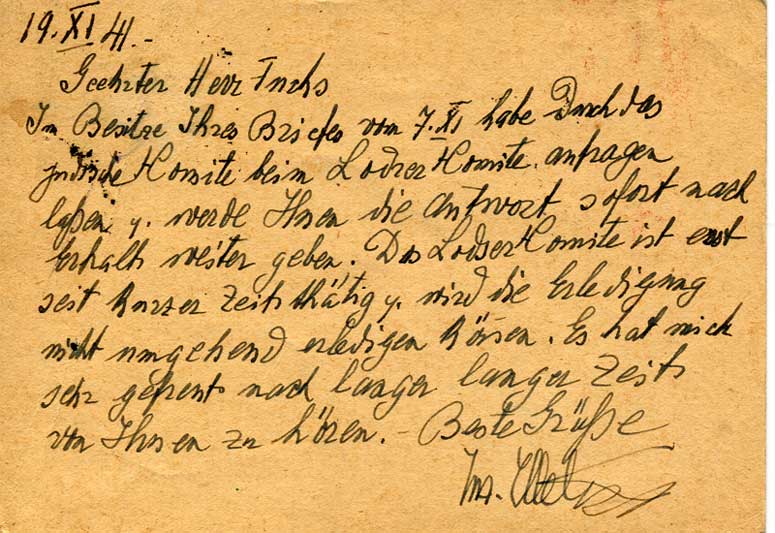 19.XI 41.-
Geehrter Herr Fuchs
Im Besitze Ihres Briefes vom 7.XI habe Durch das
jüdische Komite beim Lodzer Komite anfragen
laßen, u. werde Ihnen die Antwort sofort nach
Erhalt weiter geben. Das Lodzer Komite ist erst
seit kurzer Zeit thätig u. wird die Erledigung
nicht umgehend erledigen können. Es hat mich
sehr gefreut nach langer langer Zeit
von Ihnen zu hören. - Beste Grüße